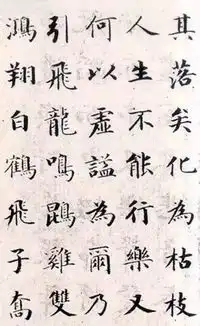 其落矣化為枯枝
人生不能行樂又
何以虛謚為爾乃
引飛龍鳴鵾雞雙
鴻翔白鶴飛子喬